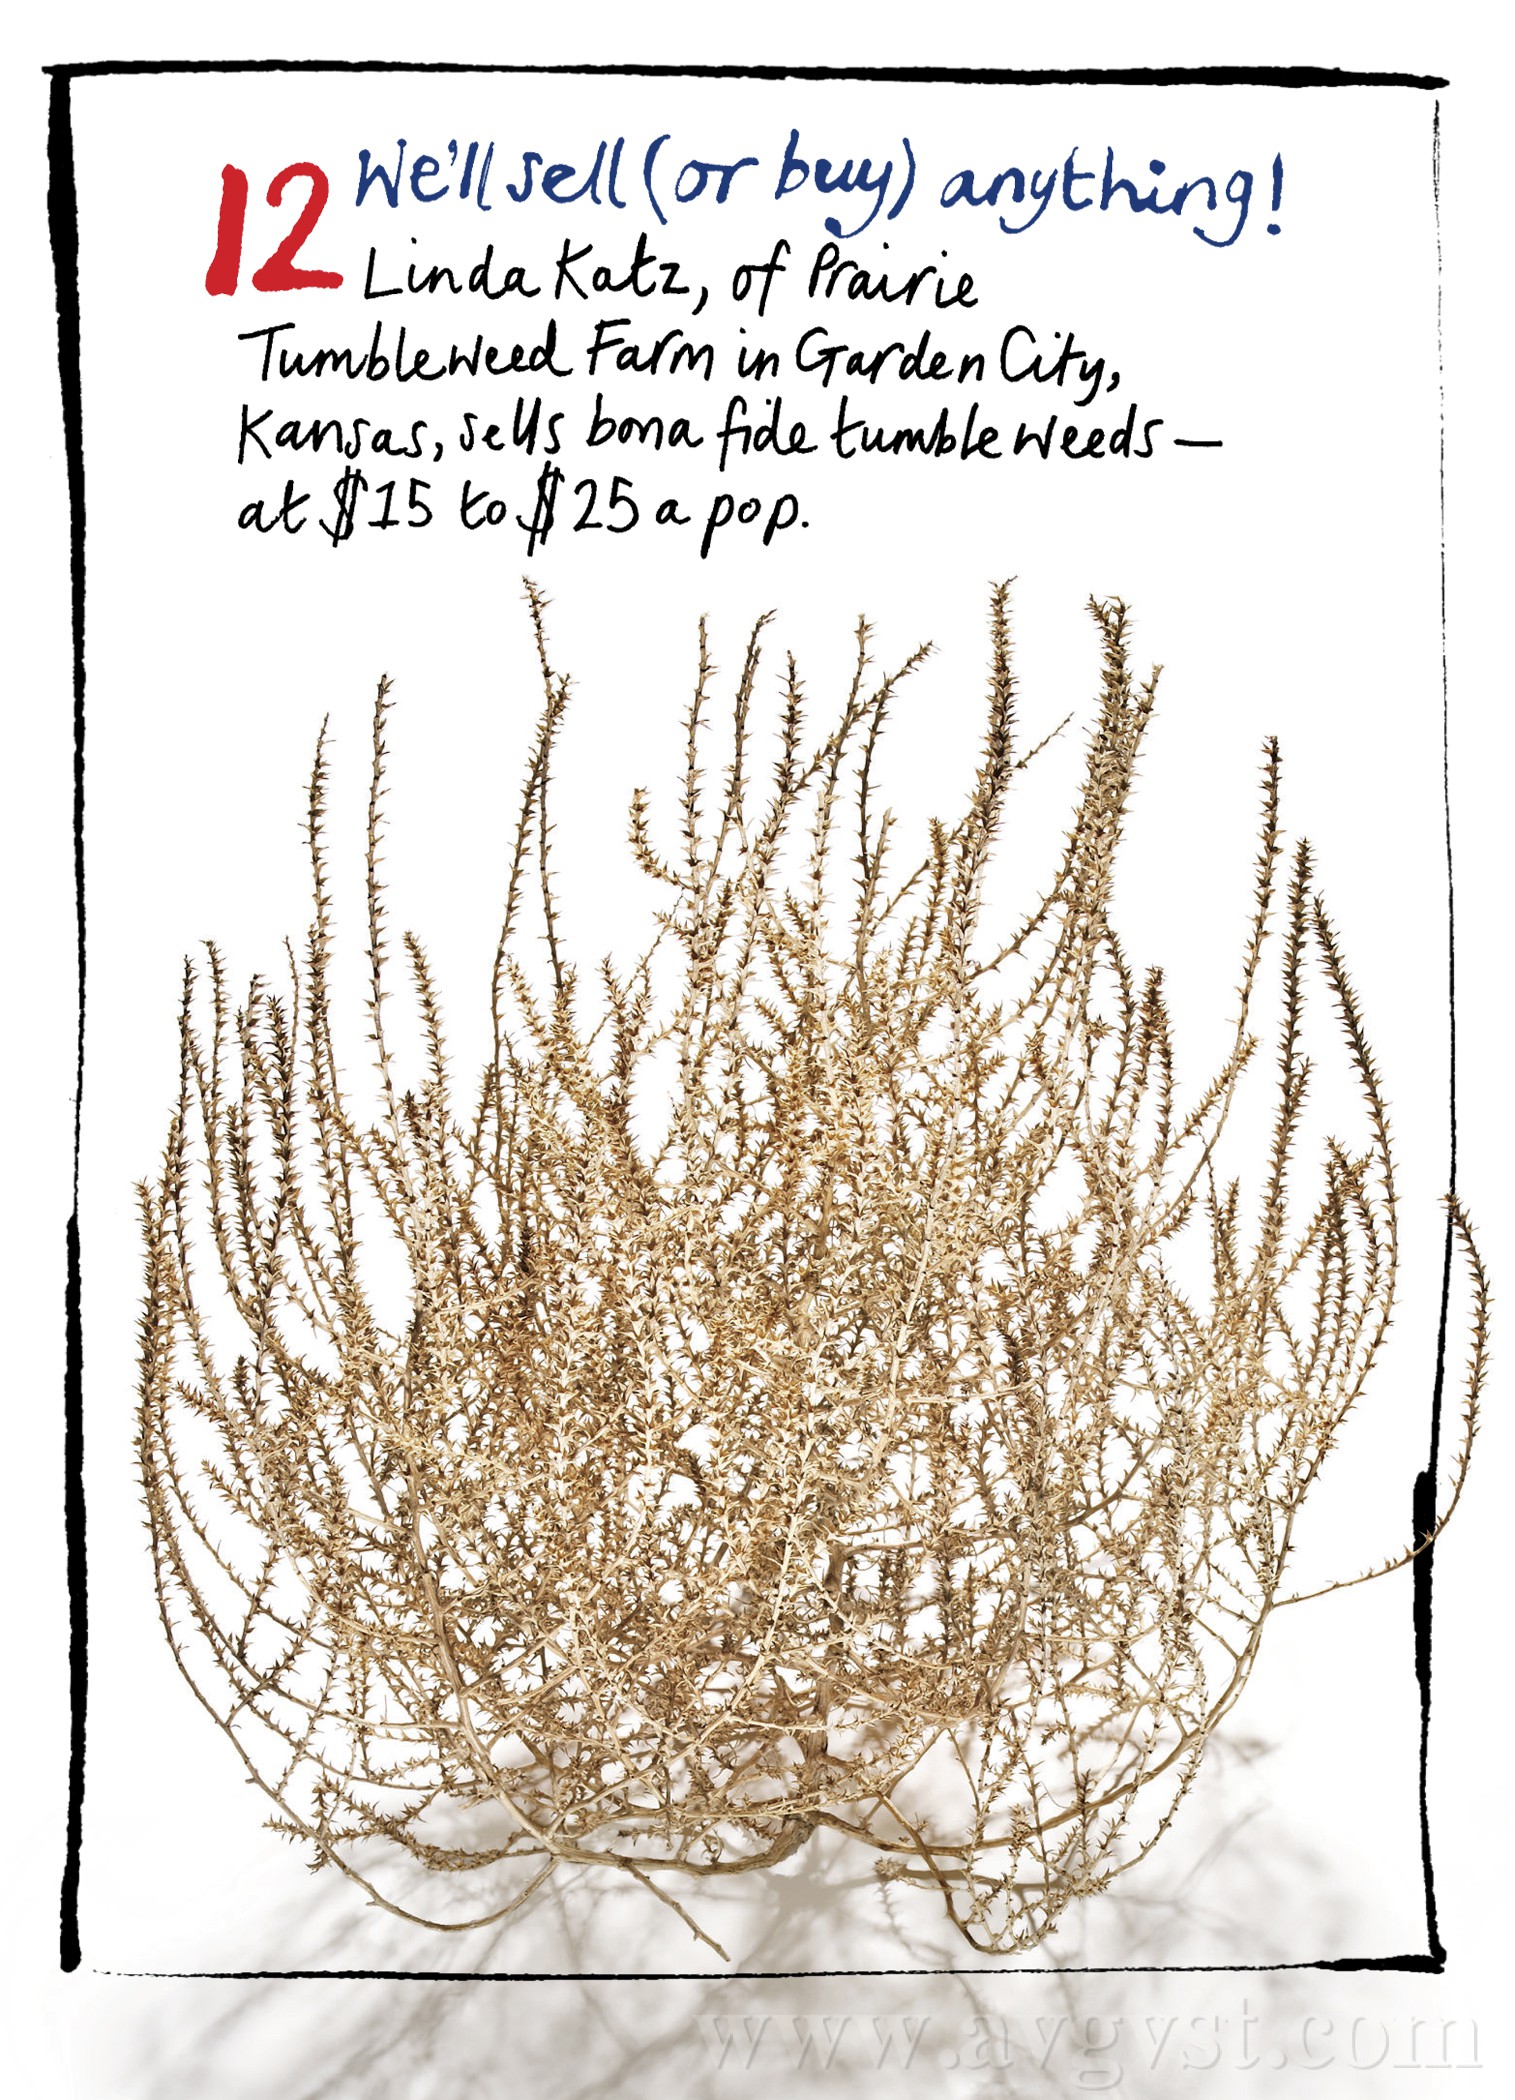 12 We'll sell (or buy) anything!
Linda Katz, of Prairie
Tumbleweed Farm in Garden City,
Kansas, sells bona fide tumbleweeds—
at $15 to $25 a pop.
www.avgvst.com